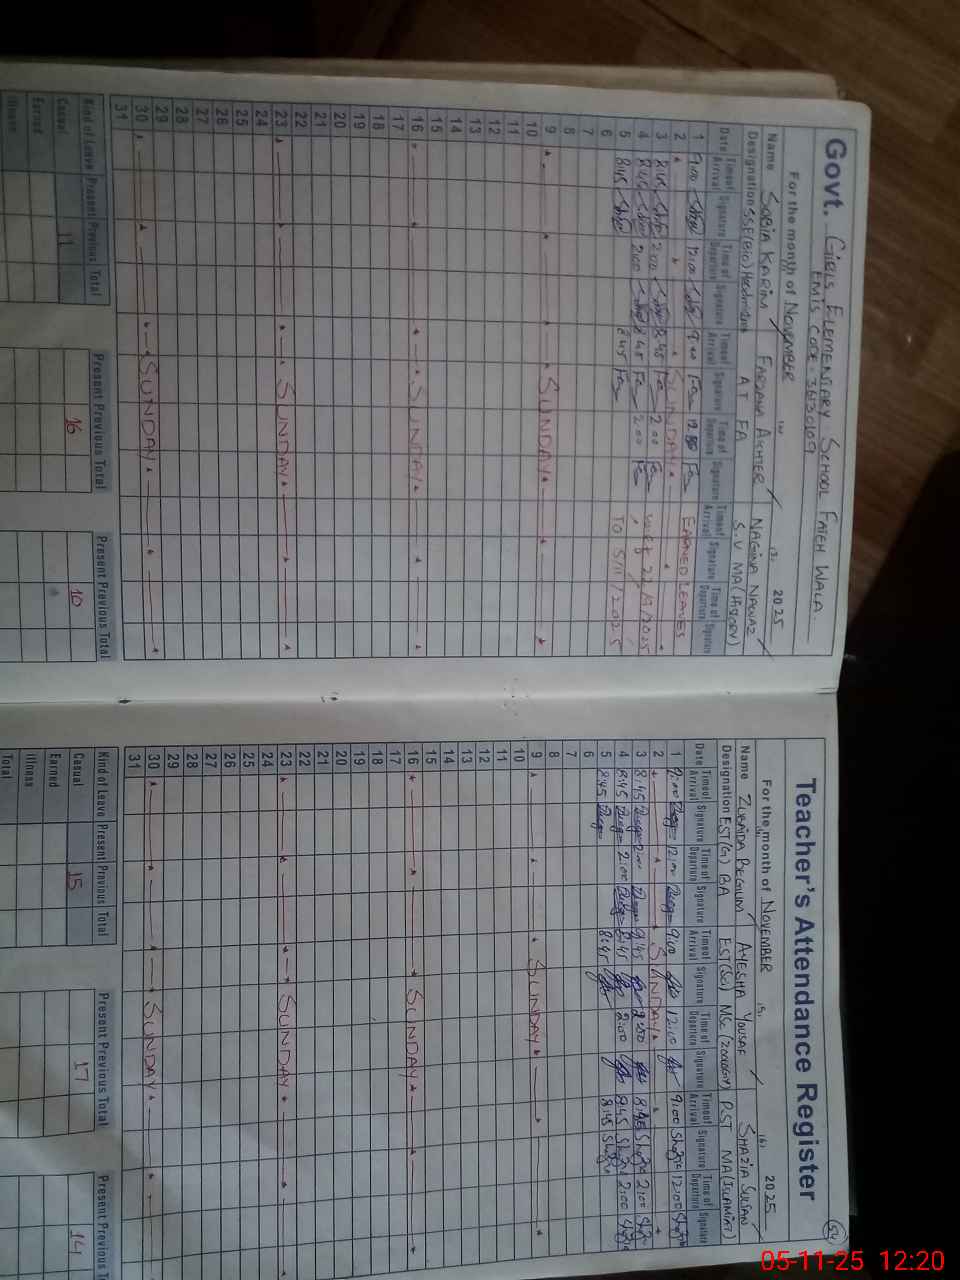 Govt. GIRLS ELEMENTARY SCHOOL FATEH WALA.
EMIS CODE = 36130109
For the month of NOVEMBER 2025
Name SOBIA KARIM FARZANA AKHTER NAGINA NAWAZ
Designation SSE(BIO) Headmistress AT FA S.V MA (HISTORY)
Date Time of Arrival Signature Time of Departure Signature Time of Arrival Signature Time of Departure Signature Time of Arrival Signature Time of Departure Signature
1 9:00 12:00 9:00 12:00 EARNED LEAVES
2 SUNDAY
3 8:45 2:00 8:45 2:00 w.e.f 22/9/2025
4 8:45 2:00 8:45 2:00
5 8:45 8:45 TO 5/11/2025
6
7
8
9 SUNDAY
10
11
12
13
14
15
16 SUNDAY
17
18
19
20
21
22
23 SUNDAY
24
25
26
27
28
29
30 SUNDAY
31
Kind of Leave Present Previous Total Present Previous Total Present Previous Total
Casual 11 16 10
Earned
Illness
Teacher's Attendance Register
54
For the month of NOVEMBER 2025
Name ZUBAIDA BEGUM AYESHA YOUSAF SHAZIA SULTAN
Designation EST(G) BA EST(Sci) MSc (ZOOLOGY) PST MA (ISLAMIAT)
Date Time of Arrival Signature Time of Departure Signature Time of Arrival Signature Time of Departure Signature Time of Arrival Signature Time of Departure Signature
1 9:00 12:00 9:00 12:00 9:00 12:00
2 SUNDAY
3 8:45 2:00 8:45 2:00 8:45 2:00
4 8:45 2:00 8:45 2:00 8:45 2:00
5 8:45 8:45 8:45
6
7
8
9 SUNDAY
10
11
12
13
14
15
16 SUNDAY
17
18
19
20
21
22
23 SUNDAY
24
25
26
27
28
29
30 SUNDAY
31
Kind of Leave Present Previous Total Present Previous Total Present Previous
Casual 15 17 14
Earned
Illness
Total
05-11-25 12:20